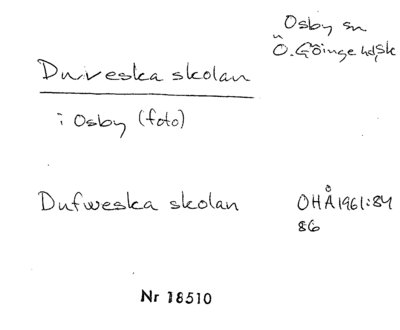 Osby sn
Ö. Göinge hd, Sk
Duveska skolan
i Osby (foto)
Dufweska skolan
OHÅ 1961:84
86
Nr 18510